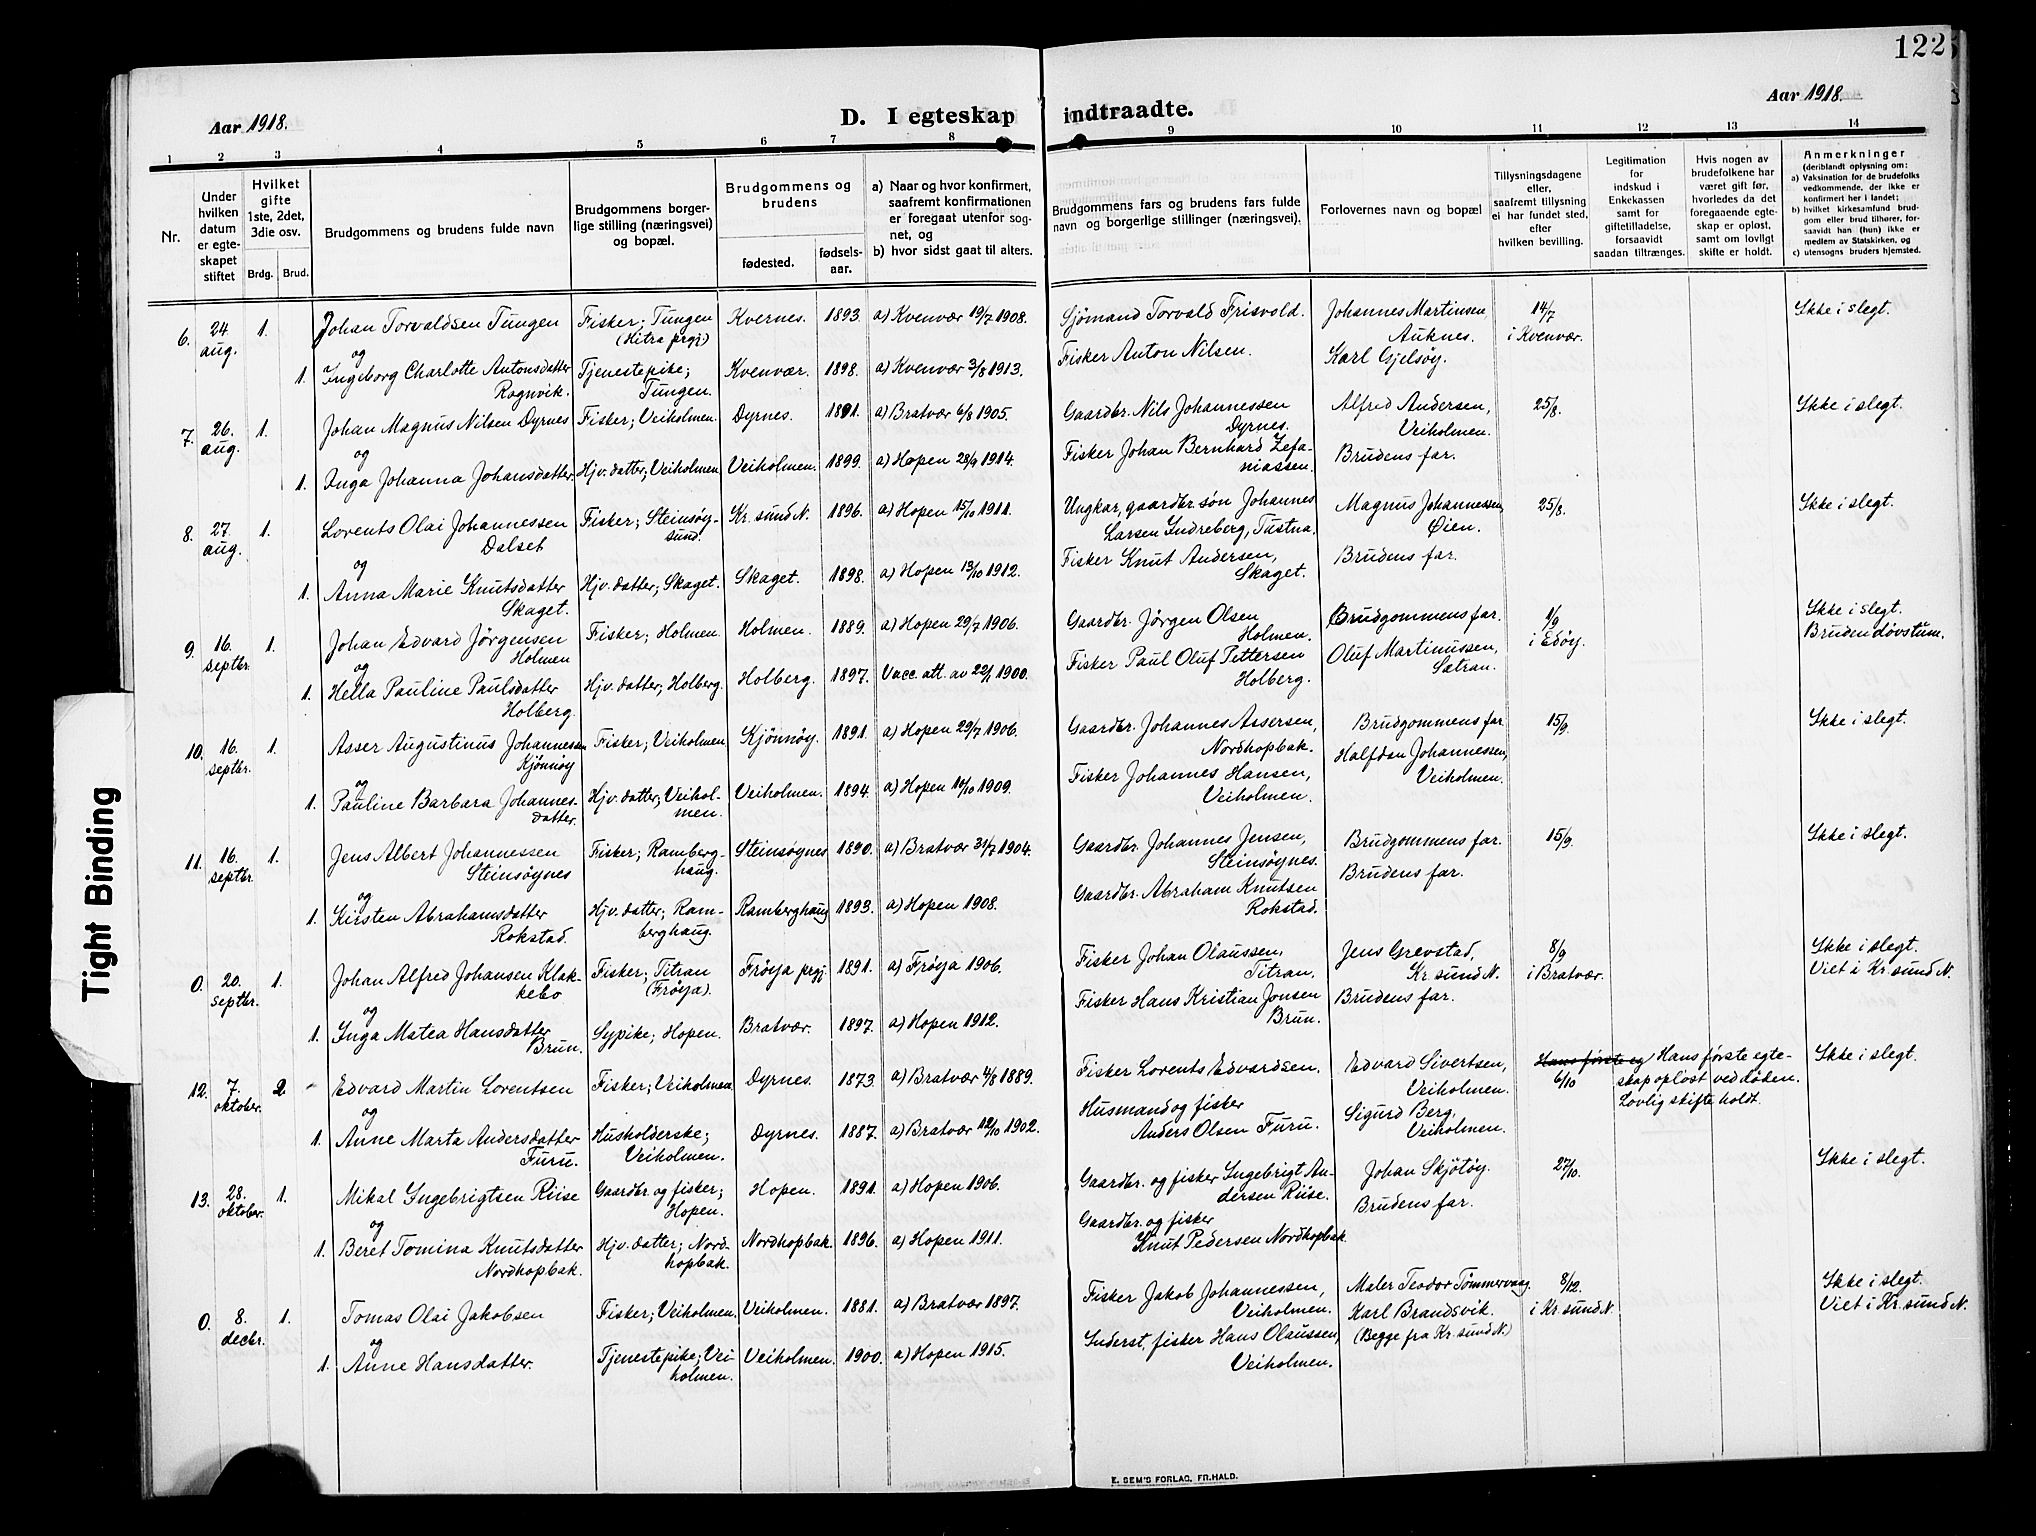 122
Aar 1918.
D. I egteskap indtraadte.
Aar 1918.
1 2 3 4 5 6 7 8 9 10 11 12 13 14
Nr.
Under hvilken datum er egteskapet stiftet
Hvilket gifte 1ste, 2det, 3die osv.
Brdg. Brud.
Brudgommens og brudens fulde navn
Brudgommens borgerlige stilling (næringsvei) og bopæl.
Brudgommens og brudens
fødested.
fødselsaar.
a) Naar og hvor konfirmert, saafremt konfirmationen er foregaat utenfor sognet, og
b) hvor sidst gaat til alters.
Brudgommens fars og brudens fars fulde navn og borgerlige stillinger (næringsvei).
Forlovernes navn og bopæl
Tillysningsdagene eller, saafremt tillysning ei har fundet sted, efter hvilken bevilling.
Legitimation for indskud i Enkekassen samt for giftetilladelse, forsaavidt saadan tiltrænges.
Hvis nogen av brudefolkene har været gift før, hvorledes da det foregaaende egteskap er opløst, samt om lovligt skifte er holdt.
Anmerkninger
(deriblandt oplysning om:
a) Vaksination for de brudefolks vedkommende, der ikke er konfirmert her i landet;
b) hvilket kirkesamfund brudgom eller brud tilhører, forsaavidt han (hun) ikke er medlem av Statskirken, og
c) utensogns bruders hjemsted.
6. 24 aug. 1. Johan Torvaldsen Tungen Fisker; Tungen (Hitra prgj) Kvernes. 1893. a) Kvenvær 19/7 1908. Sjømand Torvald Frisvold. Johannes Martinsen Auknes. 14/7 i Kvenvær. Ikke i slegt.
og
1. Ingeborg Charlotte Antonsdatter Rognvik. Tjenestepike; Tungen. Kvenvær. 1898. a) Kvenvær 3/8 1913. Fisker Anton Nilsen. Karl Gjelsøy.
7. 26. aug. 1. Johan Magnus Nilsen Dyrnes Fisker; Veiholmen. Dyrnes. 1891. a) Bratvær 6/8 1905. Gaardbr. Nils Johannessen Dyrnes. Alfred Andersen, Veiholmen. 25/8. Ikke i slegt.
og
1. Inga Johanna Johansdatter. Hjv. datter; Veiholmen Veiholmen. 1899. a) Hopen 28/9 1914. Fisker Johan Bernhard Zefaniassen. Brudens far.
8. 27. aug. 1. Lorents Olai Johannessen Dalset Fisker; Steinsøysund. Kr. sund N. 1896. a) Hopen 15/10 1911. Ungkar, gaardbr. søn Johannes Larsen Indreberg, Tustna. Magnus Johannessen, Øien. 25/8. Ikke i slegt.
og
1. Anna Marie Knutsdatter Skaget. Hjv. datter; Skaget. Skaget. 1898. a) Hopen 13/10 1912. Fisker Knut Andersen, Skaget. Brudens far.
9. 16. septbr. 1. Johan Edvard Jørgensen Holmen Fisker; Holmen. Holmen. 1889. a) Hopen 29/7 1906. Gaardbr. Jørgen Olsen Holmen. Brudgommens far. 1/9 i Edøy. Ikke i slegt. Bruden døvstum.
og
1. Hella Pauline Paulsdatter Holberg. Hjv. datter; Holberg. Holberg. 1897. Vacc. att. av 22/1 1900. Fisker Paul Oluf Pettersen Holberg. Oluf Martinussen, Sætran.
10. 16. septbr. 1. Asser Augustinus Johannessen Kjønnøy Fisker; Veiholmen. Kjønnøy. 1891. a) Hopen 29/7 1906. Gaardbr. Johannes Assersen, Nordhopbak. Brudgommens far. 15/9. Ikke i slegt.
og
1. Pauline Barbara Johannesdatter. Hjv. datter; Veiholmen. Veiholmen. 1894. a) Hopen 10/10 1909. Fisker Johannes Hansen, Veiholmen. Halfdan Johannessen, Veiholmen.
11. 16. septbr. 1. Jens Albert Johannessen Steinsøynes Fisker; Ramberghaug. Steinsøynes 1890. a) Bratvær 31/7 1904. Gaardbr. Johannes Jensen, Steinsøynes. Brudgommens far. 15/9. Ikke i slegt.
og
1. Kirsten Abrahamsdatter Rokstad. Hjv. datter; Ramberghaug. Ramberghaug 1893. a) Hopen 1908. Gaardbr. Abraham Knutsen Rokstad. Brudens far.
0. 20. septbr. 1. Johan Alfred Johansen Klakkebo Fisker; Titran (Frøya). Frøya prgj 1891. a) Frøya 1906. Fisker Johan Olaussen, Titran, Jens Grevstad, Kr. sund N. 8/9 i Bratvær. Ikke i slegt. Viet i Kr. sund N.
og
1. Inga Matea Hansdatter Brun. Sypike; Hopen. Bratvær. 1897. a) Hopen 1912. Fisker Hans Kristian Jonsen Brun. Brudens far.
12. 7. oktober. 2. Edvard Martin Lorentsen Fisker; Veiholmen. Dyrnes. 1873. a) Bratvær 4/8 1889. Fisker Lorents Edvardsen. Edvard Sivertsen, Veiholmen. Hans første eg 6/10 Hans første egteskap opløst ved døden. Lovlig skifte holdt. Ikke i slegt.
og
1. Anne Marta Andersdatter Furu. Husholderske; Veiholmen. Dyrnes. 1887. a) Bratvær 12/10 1902. Husmand og fisker Anders Olsen Furu. Sigurd Berg. Veiholmen.
13. 28. oktober. 1. Mikal Ingebrigtsen Riise Gaardbr. og fisker; Hopen. Hopen. 1891. a) Hopen 1906. Gaardbr. og fisker Ingebrigt Andersen Riise. Johan Skjøtøy. 27/10. Ikke i slegt.
og
1. Beret Tomina Knutsdatter Nordhopbak. Hjv. datter; Nordhopbak. Nordhopbak. 1896. a) Hopen 1911. Gaardbr. og fisker Knut Pedersen Nordhopbak. Brudens far.
0. 8. decbr. 1. Tomas Olai Jakobsen Fisker; Veiholmen. Veiholmen. 1881. a) Bratvær 1897. Fisker Jakob Johannessen, Veiholmen. Maler Teodor Tømmervaag 8/12. i Kr. sund N. Ikke i slegt. Viet i Kr. sund N.
og
1. Anne Hansdatter. Tjenestepike; Veiholmen. Veiholmen. 1900. a) Hopen 1915. Inderst, fisker Hans Olaussen, Veiholmen. Karl Brandsvik. (Begge fra Kr. sund N.)
E. SEM'S FORLAG, FR.HALD.
Tight Binding